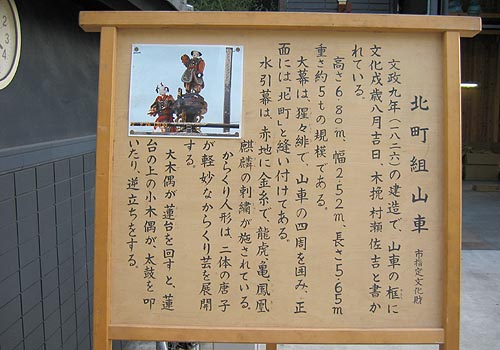 北町組山車
市指定文化財
文政九年(一八二六)の建造で、山車の框に
文化戌歳八月吉日、木挽、村瀬佐吉と書か
れている。
高さ6.80m、幅2.52m、長さ5.65m
重さ約5tの規模である。
大幕は、猩々緋で、山車の四周を囲み、正
面には「北町」と縫い付けてある。
水引幕は、赤地に金糸で、龍虎、亀、鳳凰
麒麟の刺繍が施されている。
からくり人形は、二体の唐子
が軽妙なからくり芸を展開
する。
大木偶が蓮台を回すと、蓮
台の上の小木偶が、太鼓を叩
いたり、逆立ちをする。
2
3
4